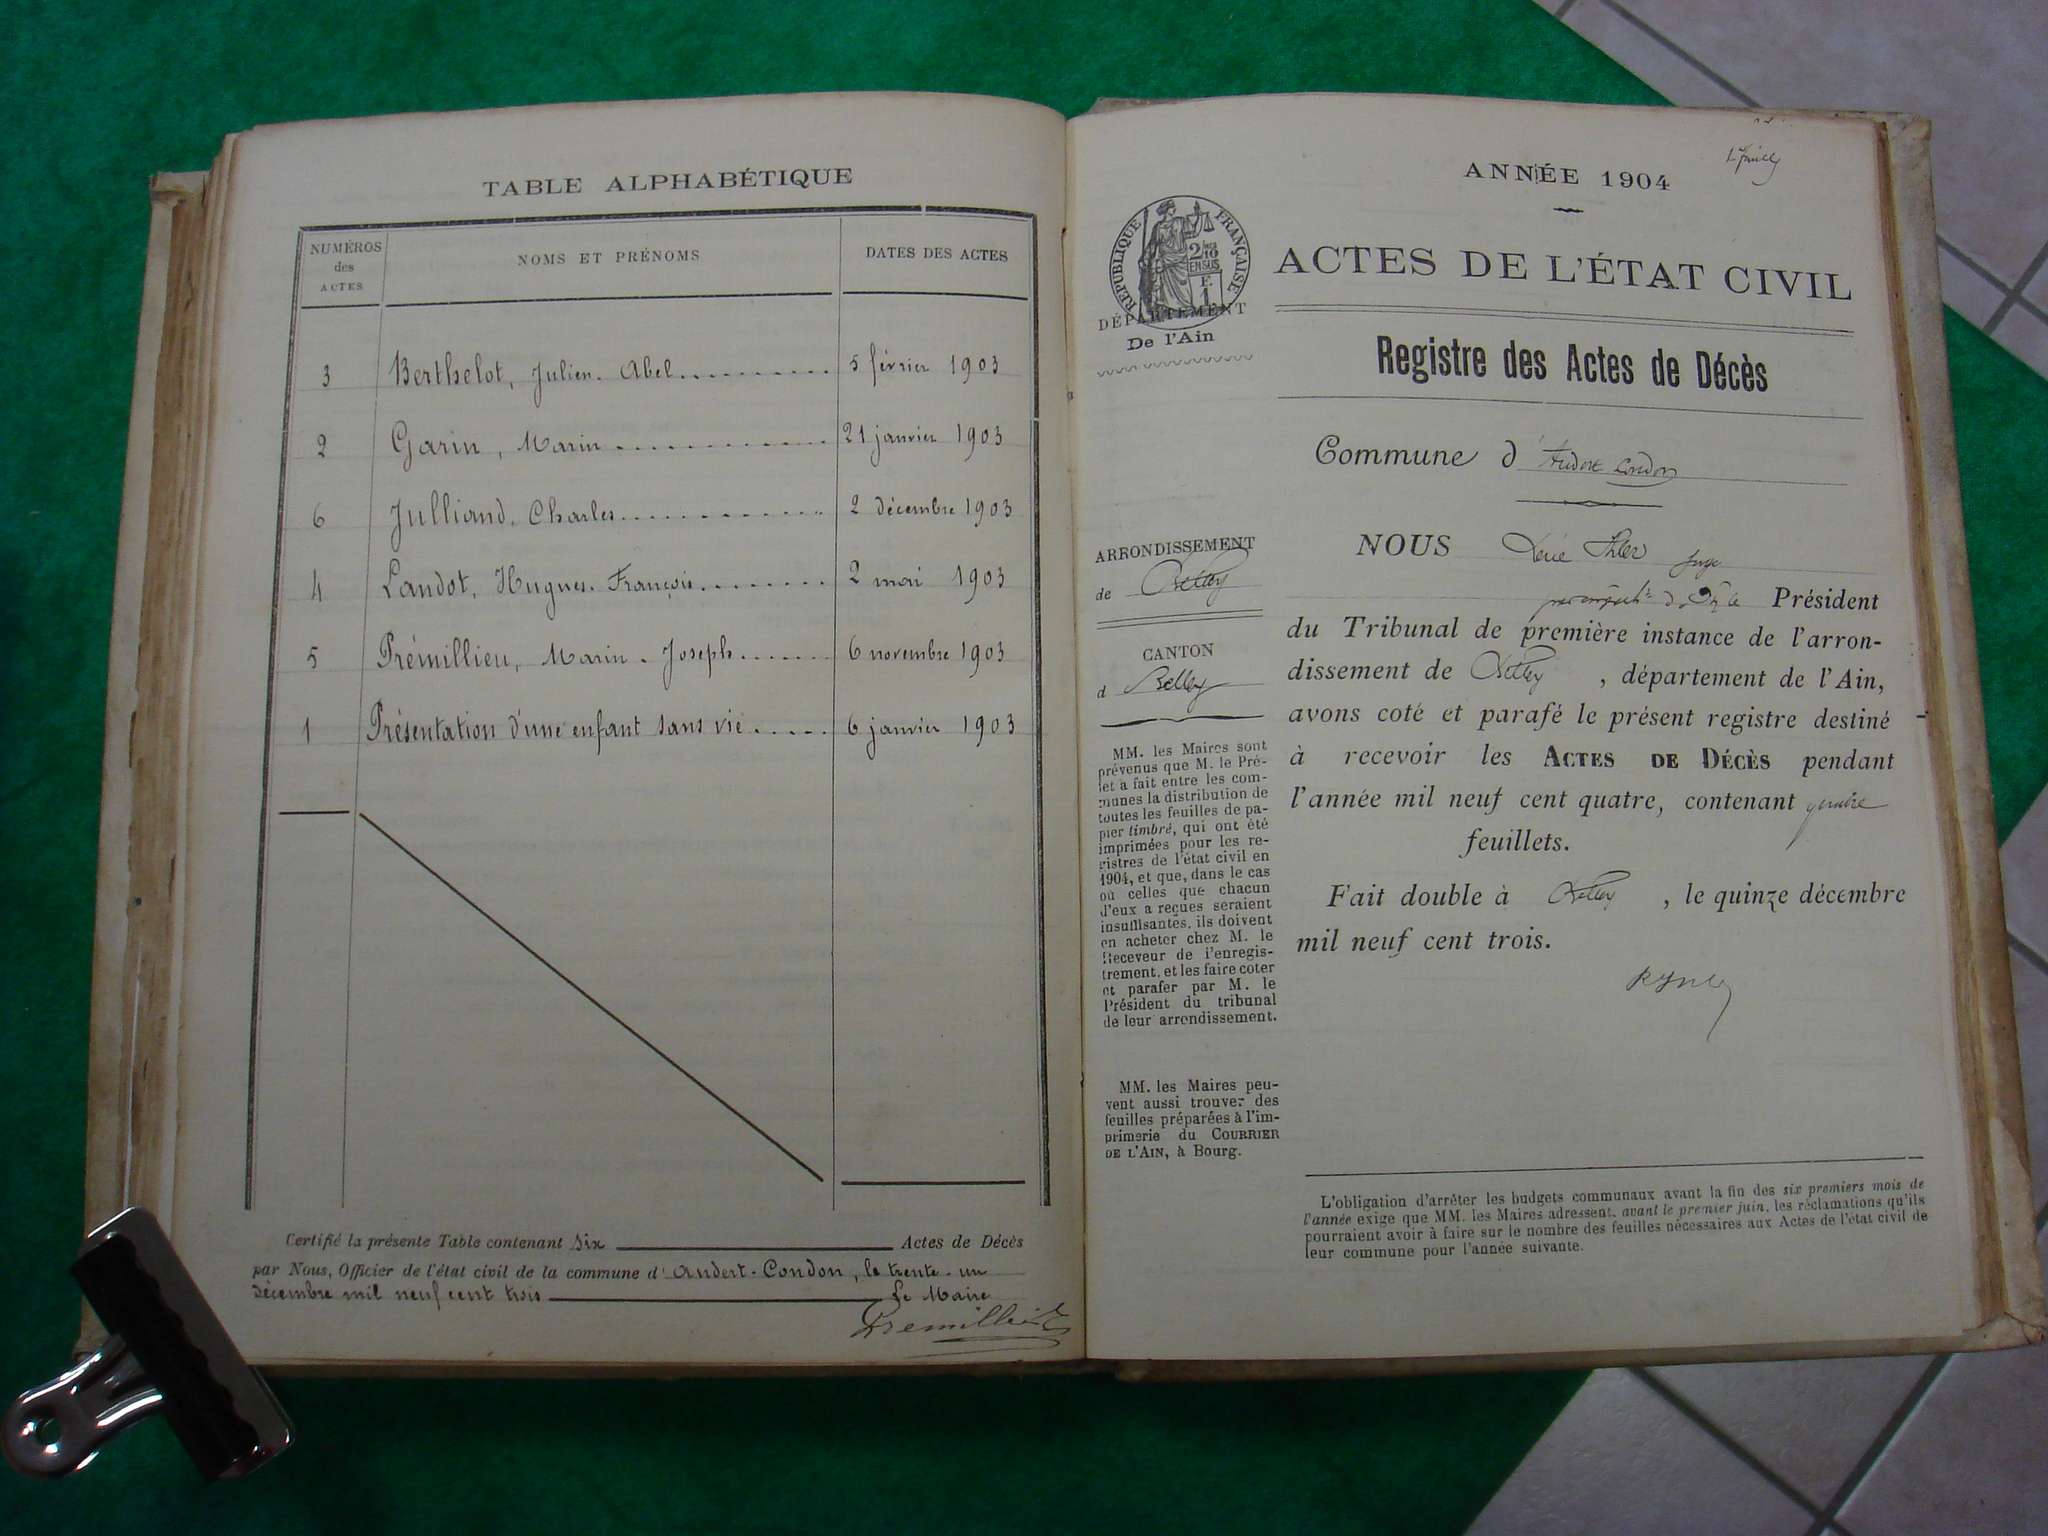 TABLE ALPHABÉTIQUE
NUMÉROS
des
ACTES
NOMS ET PRÉNOMS
DATES DES ACTES
3 Berthelot, Julien. Abel.......... 5 février 1903
2 Garin, Marin............ 21 janvier 1903
6 Julliand, Charles............ 2 décembre 1903
4 Landot, Hugues. François....... 2 mai 1903
5 Prémillieu, Marin. Joseph....... 6 novembre 1903
1 Présentation d'une enfant sans vie..... 6 janvier 1903
Certifié la présente Table contenant six Actes de Décès
par Nous, Officier de l'état civil de la commune d'Andert-Condon, le trente-un
décembre mil neuf cent trois Le Maire
Premillieu
ANNÉE 1904
RÉPUBLIQUE FRANÇAISE
2/10
EN SUS
F.
1
DÉPARTEMENT
De l'Ain
ACTES DE L'ÉTAT CIVIL
Registre des Actes de Décès
Commune d'Andert Condon
ARRONDISSEMENT
de Belley
CANTON
d Belley
MM. les Maires sont
prévenus que M. le Pré-
fet a fait entre les com-
munes la distribution de
toutes les feuilles de pa-
pier timbré, qui ont été
imprimées pour les re-
gistres de l'état civil en
1904, et que, dans le cas
où celles que chacun
d'eux a reçues seraient
insuffisantes, ils doivent
en acheter chez M. le
Receveur de l'enregis-
trement, et les faire coter
et parafer par M. le
Président du tribunal
de leur arrondissement.
MM. les Maires peu-
vent aussi trouver des
feuilles préparées à l'im-
primerie du COURRIER
DE L'AIN, à Bourg.
NOUS juge
Président
du Tribunal de première instance de l'arron-
dissement de Belley, département de l'Ain,
avons coté et parafé le présent registre destiné
à recevoir les ACTES DE DÉCÈS pendant
l'année mil neuf cent quatre, contenant
feuillets.
Fait double à Belley, le quinze décembre
mil neuf cent trois.
L'obligation d'arrêter les budgets communaux avant la fin des six premiers mois de
l'année exige que MM. les Maires adressent, avant le premier juin, les réclamations qu'ils
pourraient avoir à faire sur le nombre des feuilles nécessaires aux Actes de l'état civil de
leur commune pour l'année suivante.